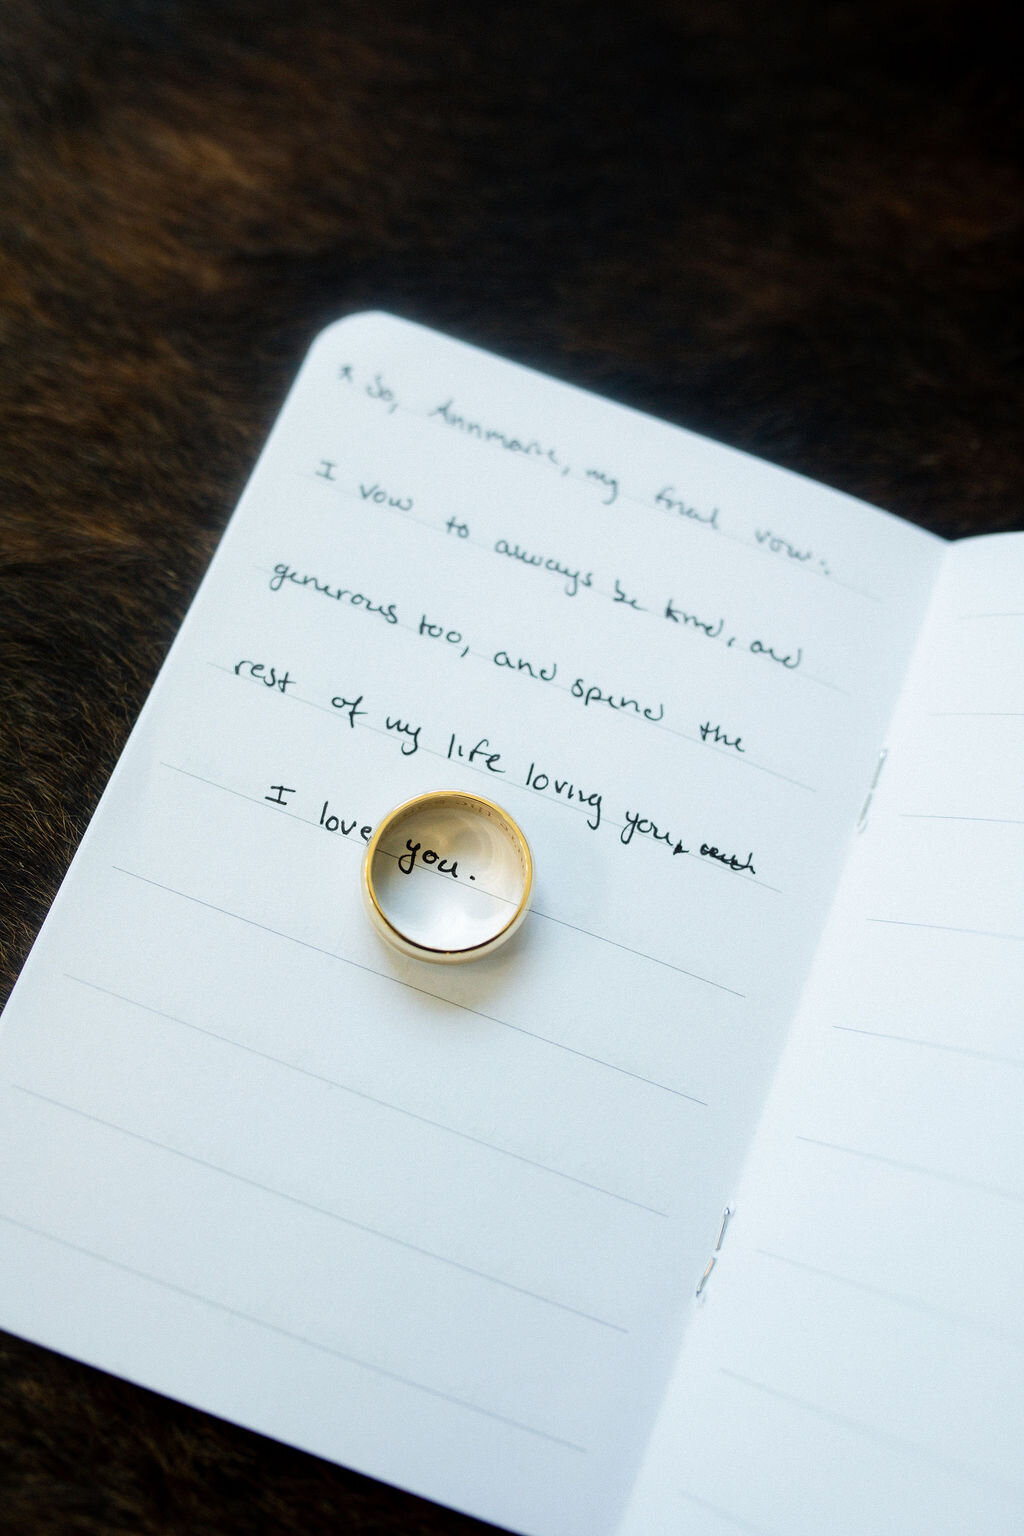 * So, Annmarie, my final vow:
I vow to always be kind, and
generous too, and spend the
rest of my life loving you,
I love you.